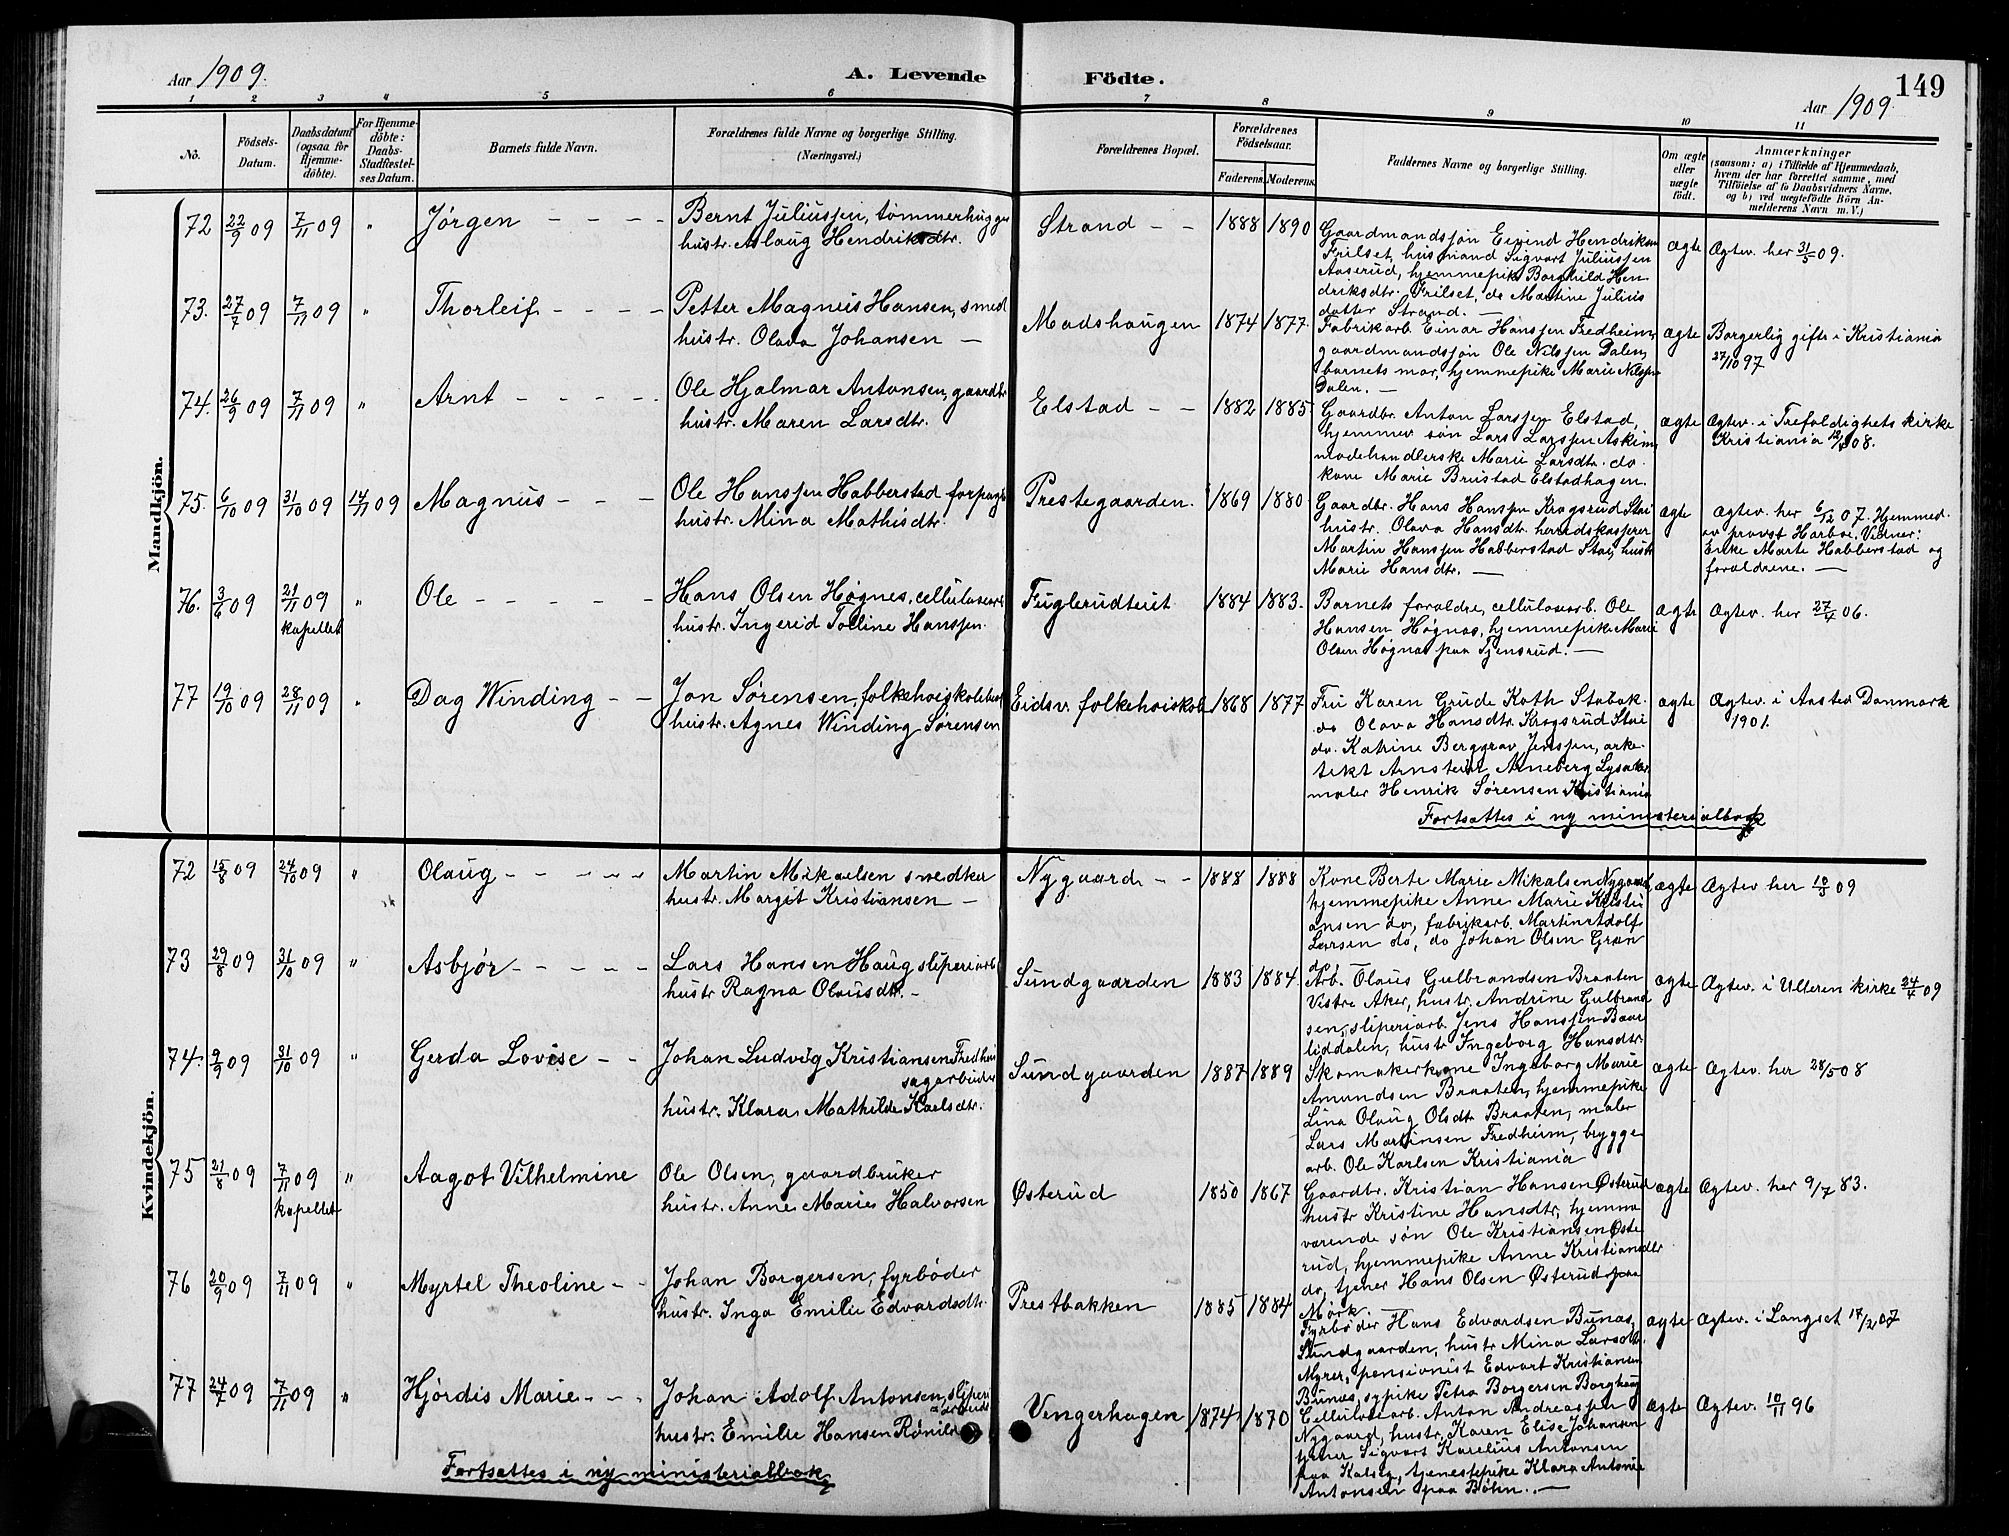 Aar 1909.
A. Levende Födte.
149
Aar 1909
1 2 3 4 5 6 7 8 9 10 11
No.
Födsels-Datum.
Daabsdatum (ogsaa for Hjemme-döbte).
For Hjemme-döbte: Daabs-Stadfæstel-ses Datum.
Barnets fulde Navn.
Forældrenes fulde Navne og borgerlige Stilling. (Næringsvei.)
Forældrenes Bopæl.
Forældrenes Födselsaar.
Faderens. Moderens.
Faddernes Navne og borgerlige Stilling.
Om ægte eller uægte födt.
Anmærkninger
(saasom: a) i Tilfælde af Hjemmedaab,
hvem der har forrettet samme, med
Tilföielse af to Daabsvidners Navne,
og b) ved uægtefödte Börn An-
melderens Navn m. V.)
Mandkjön.
72 22/9 09 7/11 09 " Jørgen - - - -
Bernt Juliussen, tømmerhugger
hustr. Aslaug Hendriksdtr.
Strand - - 1888 1890
Gaardmandssøn Eivind Hendriksen
Frilset, husmand Sigvart Juliussen
Aaserud, hjemmepike Borghild Hen
driksdtr. Frilset, do Martine Julius
datter Strand. —
ægte Ægtev. her 31/5 09.
73. 27/7 09 7/11 09 " Thorleif - - - -
Petter Magnus Hansen, smed
hustr. Olava Johansen —
Madshaugen 1874 1877.
Fabrikarb. Einar Hanssen Fredheim,
gaardmandssøn Ole Nilssen Dalen,
barnets mor, hjemmepike Marie Nilssen
Dalen. —
ægte Borgerlig gift i Kristiania
27/10 97
74. 26/9 09 7/11 09 " Arnt - - - -
Ole Hjalmar Antonsen, gaardbr
hustr. Maren Larsdtr.
Elstad - - 1882 1885
Gaardbr. Anton Larssen Elstad,
hjemmev søn Lars Larssen Askim,
modehandlerske Marie Larsdtr. do.
kone Marie Brustad Elstadhagen.
ægte Ægtev. i Trefoldighets kirke
Kristiania
75. 6/10 09 31/10 09 14/11 09 Magnus - - -
Ole Hanssen Habberstad forpagter
hustr. Mina Mathisdtr.
Prestegaarden. 1869 1880
Gaardbr. Hans Hanssen Kragsrud Stai
hustr. Olava Hansdtr. herredskasserer
Martin Hanssen Habberstad Stai, hustr
Marie Hansdtr. —
ægte Ægtev. her 6/12 07. Hjemmed.
av provst Harboe. Vidner:
Enke Marte Habberstad og
forældrene. —
76. 3/6 09 21/11 09 kapellet " Ole - - - - -
Hans Olsen Høgnes, cellulosearb
hustr. Ingerid Tolline Hanssen.
Fuglerudteiet 1884 1883.
Barnets forældre, cellulosearb. Ole
Hansen Høgnes, hjemmepike Marie
Olsen Høgnes paa Tjensrud. —
ægte Ægtev. her 27/4 06.
77 19/10 09 28/11 09 " Dag Winding - -
Jon Sørensen, folkehøiskolebest
hustr. Agnes Winding Sørensen
Eidsv. folkehøiskole 1868 1877
Fru Karen Grude Koth Stabæk.
do Olava Hansdtr. Kragsrud Stai
do. Katrine Berggrav Jenssen, arke-
tekt Arnstein Arneberg Lysaker
maler Henrik Sørensen Kristiania
ægte Ægtev. i Ansted Danmark
1901.
Fortsættes i ny ministerialbok
Kvindekjön.
72 15/8 09 24/10 09 " Olaug - - - - -
Martin Mikaelsen snedker
hustr. Margit Kristiansen —
Nygaard - - 1888 1888
Kone Berte Marie Mikalsen Nygaard,
hjemmepike Anne Marie Kristi
ansen do, fabrikarb. Martin Adolf
Larsen do, do Johan Olsen Grøn
do
ægte Ægtev her 10/3 09
73 29/8 09 31/10 09 " Asbjør - - - - -
Lars Hansen Haug sliperiarb
hustr Ragna Olausdtr. -
Sundgaarden 1883 1884.
Arb. Olaus Gulbrandsen Braaten
Vestre Aker, hustr. Andrine Gulbrand
sen, sliperiarb Jens Hanssen Baar
liddalen, hustr Ingeborg Hansdtr
ægte Ægtev. i Ulleren kirke 24/4 09
74. 9/9 09 31/10 09 " Gerda Lovise - -
Johan Ludvig Kristiansen Fredheim
sagarbeider
hustr. Klara Mathilde Karlsdtr.
Sundgaarden 1887 1889
Skomakerkone Ingeborg Marie
Amundsen Braaten, hjemmepike
Lina Olaug Olsdtr Braaten, maler
Lars Martinsen Fredheim, brygge
arb. Ole Karlsen Kristiania
ægte Ægtev. her 28/5 08
75 21/8 09 7/11 09 kapellet " Aagot Vilhelmine
Ole Olsen, gaardbruker
hustr. Anne Marie Halvorsen
Østerud 1850 1867
Gaardbr. Kristian Hansen Østerud
hustr Kristine Hansdtr, hjemme
værende søn Ole Kristiansen Øste
rud, hjemmepike Anne Kristiansdtr
do, tjener Hans Olsen Østerud paa
Mørk
ægte Ægtev. her 9/7 83.
76 20/9 09 7/11 09 " Myrtel Theoline - -
Johan Borgersen, fyrbøder
hustr. Inga Emilie Edvardsdtr.
Prestbakken 1885 1884
Fyrbøder Hans Edvardsen Bunæs,
Sundgaarden, hustr Mina Larsdtr.
Myrer, pensionist Edvart Kristiansen
Bunæs, sypike Petra Borgersen Borghaug
ægte Ægtev. i Langset 17/2 07
77 24/7 09 7/11 09 " Hjørdis Marie - - -
Johan Adolf Antonsen, sliperi
arbeider
hustr. Emilie Hansen Rønild
Vengerhagen 1874 1870
Cellulosearb. Anton Andreassen
Nygaard, hustr. Karen Elise Johansen
tjener Sigvart Karelius Antonsen
paa Kalseg, tjenestepike Klara Antonie
Antonsen paa Bøhn. —
ægte Ægtev. 10/11 96
Fortsættes i ny ministerialbok